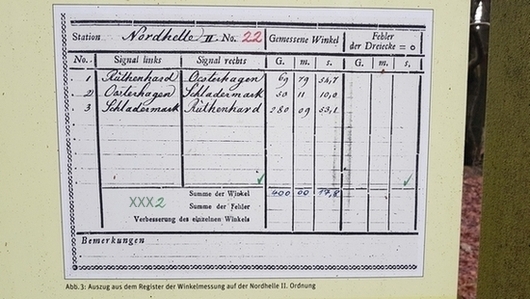 Station Nordhelle II. No. 22 Gemessene Winkel Fehler der Dreiecke = 0
No. Signal links Signal rechts G. m. s. G. m. s.
1 Rüthenhard Oosterhagen 69 79 54,7
2 Oosterhagen Schladermark 50 11 10,0
3 Schladermark Rüthenhard 280 09 53,1
Summe der Winkel 400 00 17,8
XXX2 Summe der Fehler
Verbesserung des einzelnen Winkels
Bemerkungen
Abb.3: Auszug aus dem Register der Winkelmessung auf der Nordhelle II. Ordnung